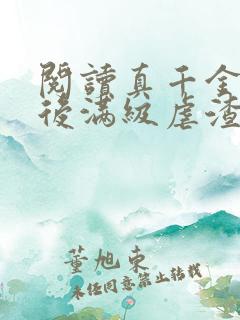 閱讀真千金
後滿級虐渣
董旭東
未經同意禁止轉載